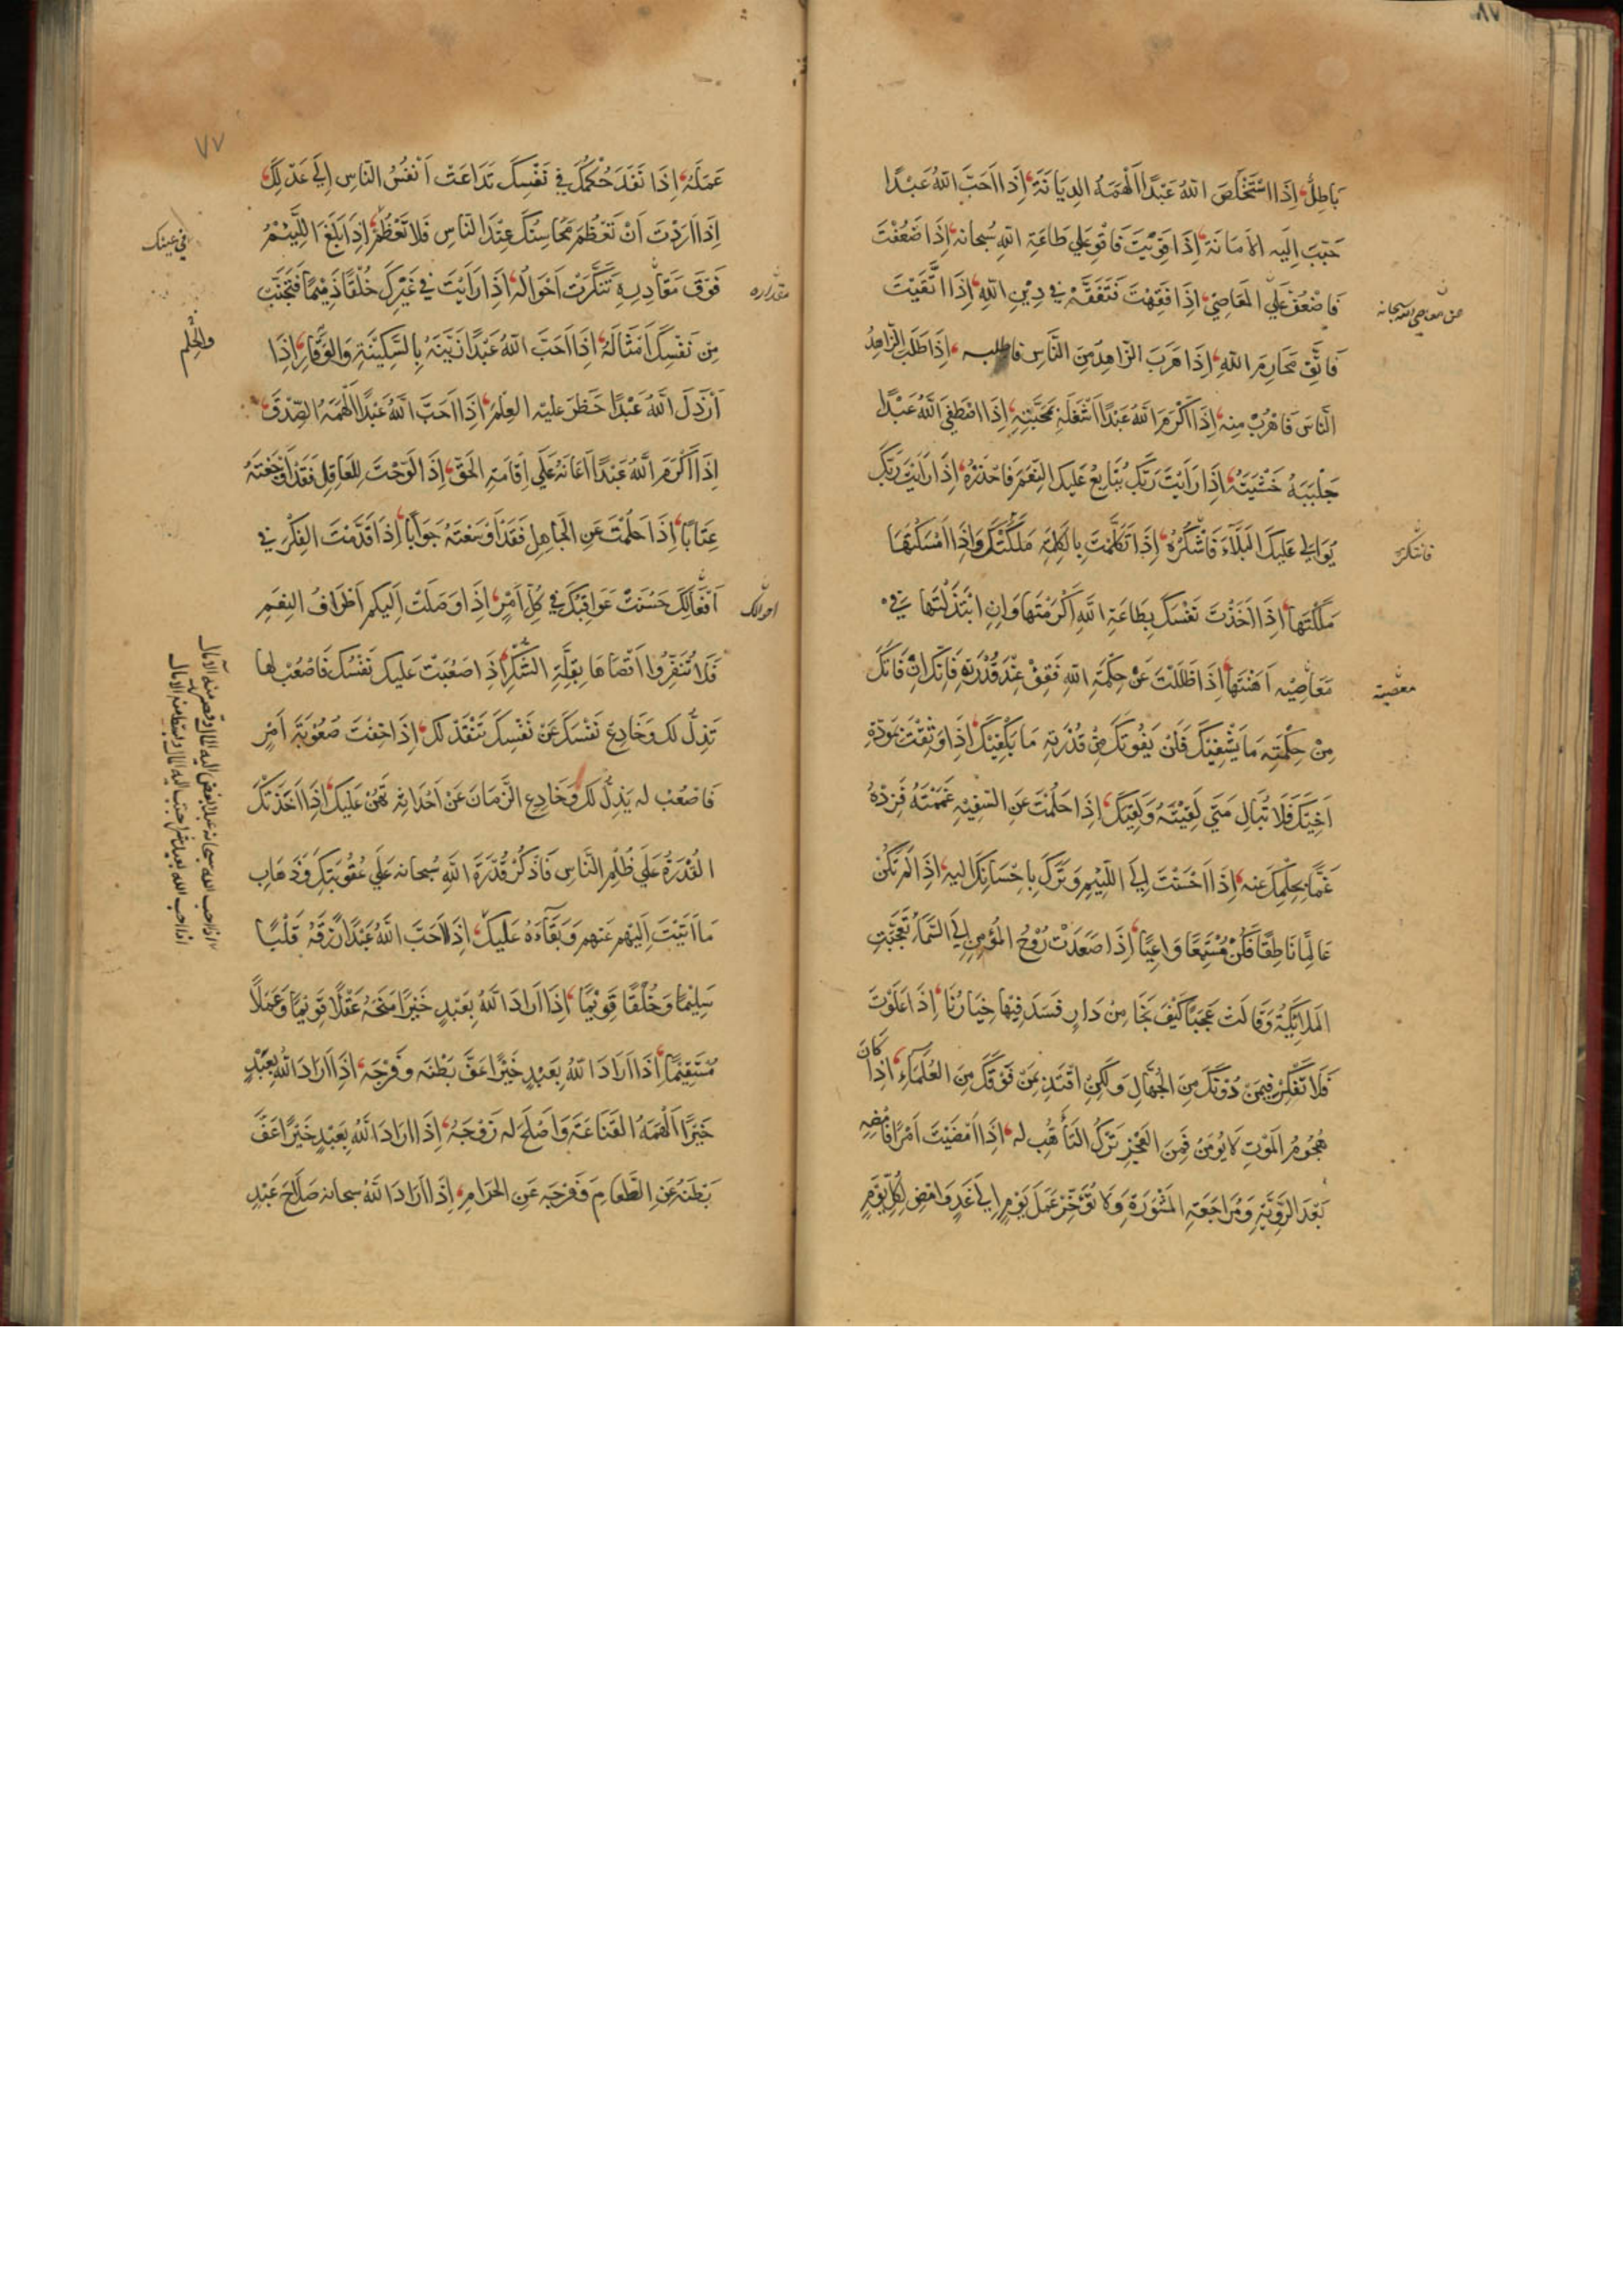 ٨٧
بَاطِلٌ إِذَا اسْتَخْلَصَ اللهُ عَبْدًا أَلْهَمَهُ الدِيَانَةَ إِذَا أَحَبَّ اللهُ عَبْدًا
حَبَّبَ إِلَيهِ الأمَانَةَ إِذَا قَوِيْتَ فَاقْوِ عَلي طَاعَةِ اللهِ سُبحانه إِذَا ضَعُفْتَ
فَاضْعُفْ عَلَي المَعَاصِيْ إِذَا فَقِهْتَ فَتَفَقَّهْ فِي دِيْنِ اللهِ إِذَا اتَّقَيْتَ
عن معاصي الله سبحانه
فَاتَّقِ مَحَارِمَ اللهِ إِذَا هَرَبَ الزَاهِدُ مِنَ النَّاسِ فاطلبه إِذَا طَلَبَ الزَّاهِدُ
النَّاسَ فَاهْرُبْ مِنه إِذَا أَكْرَمَ اللهُ عَبْدًا أَشْغَلَهُ بِمَحَبَّتِهِ إِذَا اصْطَفَي اللهُ عَبْدًا
جَلْبَبَهُ خَشْيَتَهُ إِذَا رَأَيْتَ رَبَّكَ يُتَابِعُ عَلَيكَ النِّعَمَ فَاحْذَرْهُ إِذَا رَأَيْتَ رَبَّكَ
يُوَالِي عَلَيكَ البَلَآءَ فَاشْكُرْهُ إِذَا تَكَلَّمْتَ بِالكَلِمَةِ مَلَكَتْكَ وَإِذَا أَمْسَكْتَهَا
فاشكر
مَلَكْتَهَا إِذَا أَخَذْتَ نَفْسَكَ بِطَاعَةِ اللهِ أَكْرَمْتَهَا وَإِنِ ابْتَذَلْتَهَا فِي
مَعَاصِيْهِ أَهَنْتَهَا إِذَا ظَلَلْتَ عَنْ حِكْمَةِ اللهِ فَقِفْ عِنْدَ قُدْرَتِهِ فَإِنَّكَ إِنْ فَاتَكَ
معصيته
مِنْ حِكْمَتِهِ مَا يَشْفِيْكَ فَلَنْ يَفُوْتَكَ مِنْ قُدْرَتِهِ مَا يَكْفِيْكَ إِذَا وَثِقْتَ بِمَوَدَّةِ
أَخِيْكَ فَلَا تُبَالِ مَتَي لَقِيْتَهُ وَلَقِيَكَ إِذَا حَلُمْتَ عَنِ السَّفِيْهِ غَمَمْتَهُ فَزِدْهُ
غَمًّا بِحِلْمِكَ عَنه إِذَا أَحْسَنْتَ إِلَي اللَّئِيْمِ وَتَرَكَ بِإحْسَانِكَ إليه إِذَا لَمْ تَكُنْ
عَالِمًا نَاطِقًا فَكُنْ مُسْتَمِعًا وَاعِيًا إِذَا صَعَدَتْ رُوْحُ المُؤْمِنِ إِلَي السَّمَآءِ تَعَجَّبَتِ
المَلَائِكَةُ وَقَالَتْ عَجَبًا كَيْفَ نَجَا مِنْ دَارٍ فَسَدَ فِيْهَا خِيَارُنَا إِذَا عَلَوْتَ
فَلَا تُفَكِّرْ فِيمَنْ دُوْنَكَ مِنَ الجُهَّالِ وَلَكِنِ اقْتَدِ بِمَنْ فَوْقَكَ مِنَ العُلَمَآءِ إِذَا كان
هُجُومُ المَوْتِ لَا يُؤمَنُ فَمِنَ العَجْزِ تَرْكُ التَأَهُّبِ له إِذَا أَمْضَيْتَ أَمْرًا فَامْضِهِ
بَعْدَ الرَّوِيَّةِ وَمُرَاجَعَةِ المَشْوَرَةِ وَلَا تُؤَخِّرْ عَمَلَ يَوْمٍ إِلَي غَدٍ وَامْضِ لِكُلِّ يَوْمٍ
٧٧
عَمَلَهُ إِذَا نَفَذَ حُكْمُكَ فِي نَفْسِكَ تَدَاعَتْ أَنْفُسُ النَّاسِ إِلَي عَدْلِكَ
إِذَا أَرَدْتَ أَنْ تَعْظُمَ مَحَاسِنُكَ عِنْدَ النَاسِ فَلَا تَعْظُمْ إِذَا بَلَغَ اللَّئِيْمُ
في عينك
فَوْقَ مَقَادِيرِهِ تَنَكَّرَتْ أَحْوَالُهُ إِذَا رَأَيْتَ فِي غَيْرِكَ خُلْقًا ذَمِيْمًا فَتَجَنَّبْ
مقداره
مِن نَفْسِكَ أَمْثَالَهُ إِذَا أَحَبَّ اللهُ عَبْدًا زَيَّنَهُ بِالسَّكِيْنَةِ وَالوَقَارِ إِذَا
والحلم
أَرْذَلَ اللهُ عَبْدًا حَظَرَ عَلَيهِ العِلْمَ إِذَا أَحَبَّ اللهُ عَبْدًا أَلْهَمَهُ الصِّدْقَ
إِذَا أَكْرَمَ اللهُ عَبْدًا أَعَانَهُ عَلَي إِقَامَةِ الحَقِّ إِذَا لَوَّحْتَ لِلعَاقِلِ فَقَدْ أَوْجَعْتَهُ
عِتَابًا إِذَا حَلُمْتَ عَنِ الجَاهِلِ فَقَدْ أَوْسَعْتَهُ جَوَابًا إِذَا قَدَّمْتَ الفِكْرَ فِي
أَفْعَالِكَ حَسُنَتْ عَوَاقِبُكَ فِي كُلِّ أَمْرٍ إِذَا وَصَلَتْ إِلَيكم أَطْرَافُ النِعَمِ
احوالك
فَلَا تُنَفِّرُوا أَقْصَاهَا بِقِلَّةِ الشُّكْرِ إِذَا صَعُبَتْ عَلَيكَ نَفْسُكَ فَاصْعُبْ لها
تَذِلُّ لك وَخَادِعْ نَفْسَكَ عَنْ نَفْسِكَ تَنْقَدْ لَكَ إِذَا خِفْتَ صُعُوْبَةَ أَمْرٍ
فَاصْعُبْ له يَذِلُّ لَكَ وَخَادِعِ الزَّمَانَ عَنْ أَحْدَاثِهِ تَهُنْ عَلَيكَ إِذَا أَخَذَتْكَ
القُدْرَةُ عَلَي ظُلْمِ النَّاسِ فَاذْكُرْ قُدْرَةَ اللهِ سُبحانه عَلَي عُقُوْبَتِكَ وَذَهَابِ
مَا أَتَيْتَ إِلَيْهِم عَنهم وَبَقَآءَهُ عَلَيكَ إِذَا أَحَبَّ اللهُ عَبْدًا رَزَقَهُ قَلْبًا
سَلِيْمًا وَخُلُقًا قَوِيْمًا إِذَا أَرَادَ اللهُ بِعَبْدٍ خَيْرًا مَنَحَهُ عَقْلًا قَوِيْمًا وَعَمَلًا
مُسْتَقِيْمًا إِذَا أَرَادَ اللهُ بِعَبْدٍ خَيْرًا عَفَّ بَطْنَه وَفَرْجَه إِذَا أَرَادَ اللهُ بِعَبْدٍ
خَيْرًا أَلْهَمَهُ القَنَاعَةَ وَأَصْلَحَ له زَوْجَهُ إِذَا أَرَادَ اللهُ بِعَبْدٍ خَيْرًا أَعَفَّ
بَطْنَهُ عَنِ الطَّعَامِ وَفَرْجَه عَنِ الحَرَامِ إِذَا أَرَادَ اللهُ سبحانه صَلَاحَ عَبْدٍ
اذا احب الله سبحانه عبدا بغض اليه المال وقصر منه الآمال